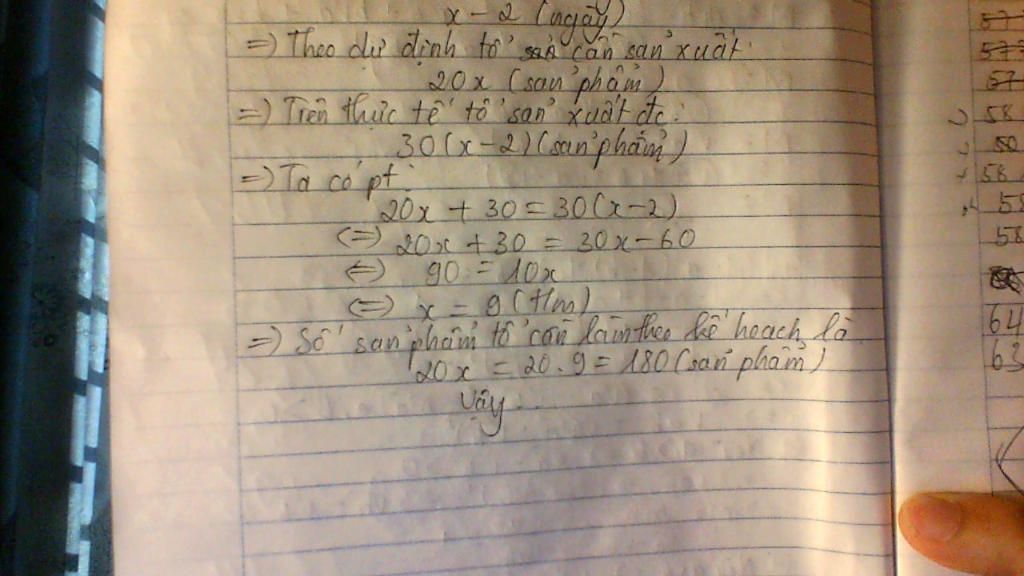 x - 2 (ngày)
=) Theo dự định tổ cần sản xuất:
20x (sản phẩm)
=) Trên thực tế tổ sản xuất đc:
30(x-2)(sản phẩm)
=) Ta có pt:
20x + 30 = 30(x-2)
(=) 20x + 30 = 30x - 60
(=) 90 = 10x
(=) x = 9 (tlm)
=) Số sản phẩm tổ cần làm theo kế hoạch là
20x = 20.9 = 180 (sản phẩm)
Vậy...
57
57
57
58
80
58
58
58
64
63